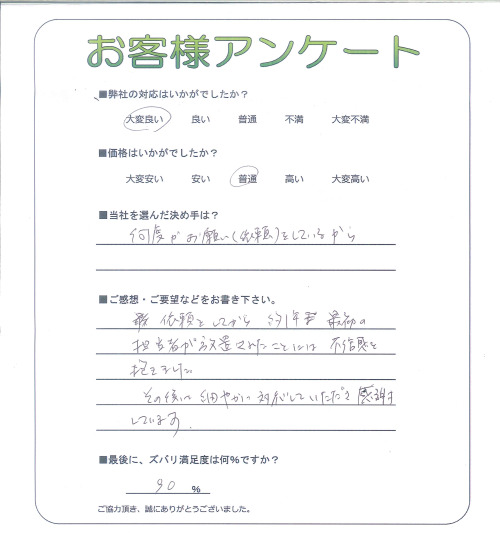 お客様アンケート
■弊社の対応はいかがでしたか？
大変良い 良い 普通 不満 大変不満
■価格はいかがでしたか？
大変安い 安い 普通 高い 大変高い
■当社を選んだ決め手は？
何度かお願い(依頼)をしているから
■ご感想・ご要望などをお書き下さい。
依頼をしてから 約1年 最初の
担当者が放置されたことには 不信感を
抱きました
その後は細やかに対応していただき 感謝を
しています.
■最後に、ズバリ満足度は何%ですか？
90 %
ご協力頂き、誠にありがとうございました。